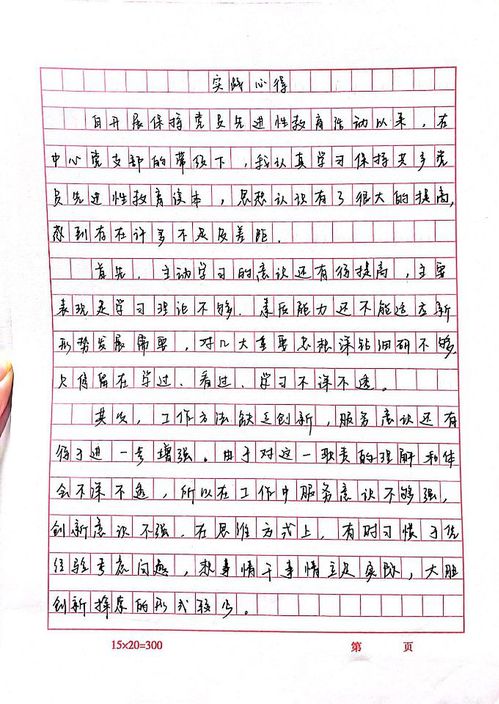 实践心得
自开展保持党员先进性教育活动以来，在
中心党支部的带领下，我认真学习保持共产党
员先进性教育读本，思想认识有了很大的提高，
感到存在许多不足及差距.
首先，主动学习的意识还有待提高，主要
表现是学习理论不够.素质能力还不能适应新
形势发展需要，对几大重要思想深钻细研不够
只停留在学过、看过、学习不深不透。
其次，工作方法缺乏创新，服务意识还有
待于进一步增强。由于对这一职责的理解和体
会不深不透，所以在工作中服务意识不够强，
创新意识不强.在思维方式上，有时习惯于凭
经验考虑问题，想事情干事情立足实践，大胆
创新探索的形式较少。
15×20=300
第 页